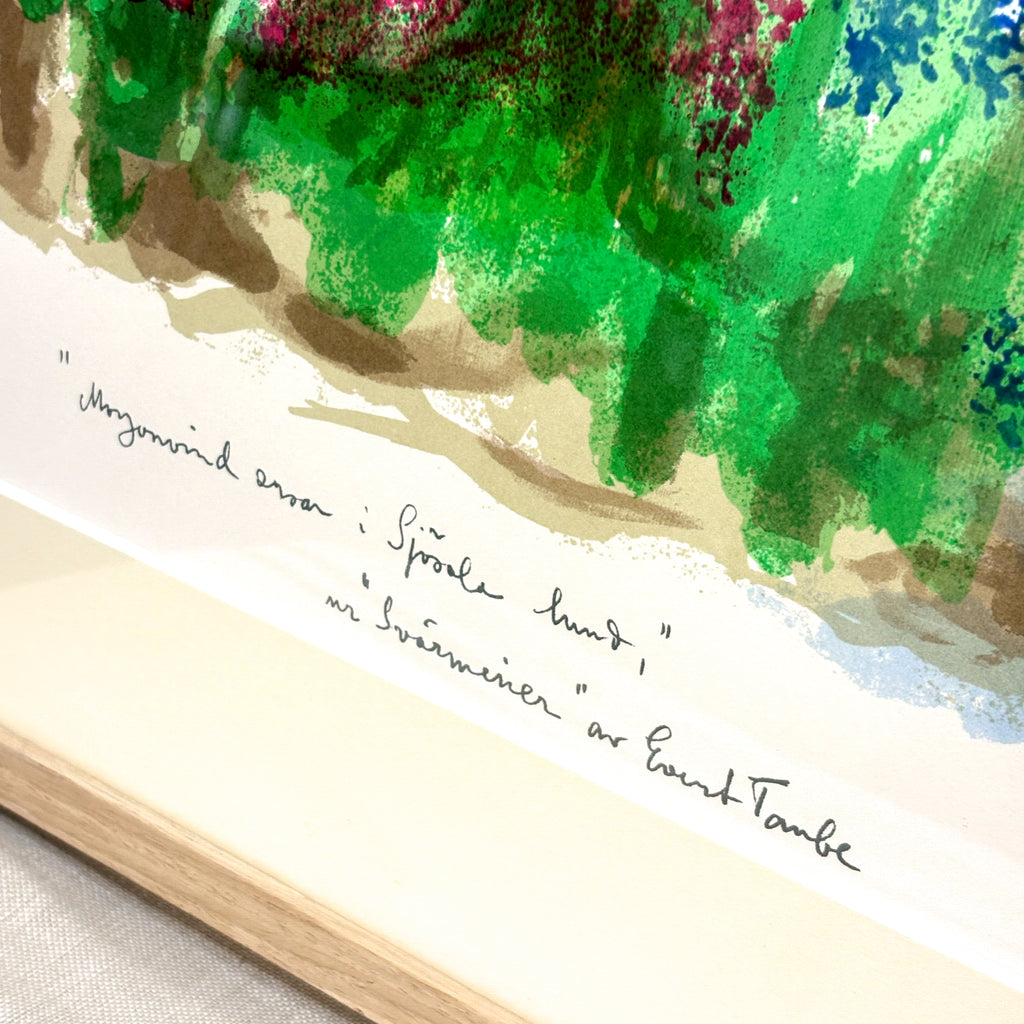 "Morgonvind svar i Sjösala lund,"
ur "Svärmerier" av Evert Taube